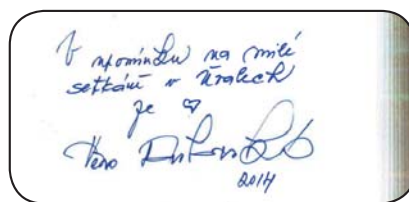 V upomínku na milé
setkání v Úvalech
je
2014